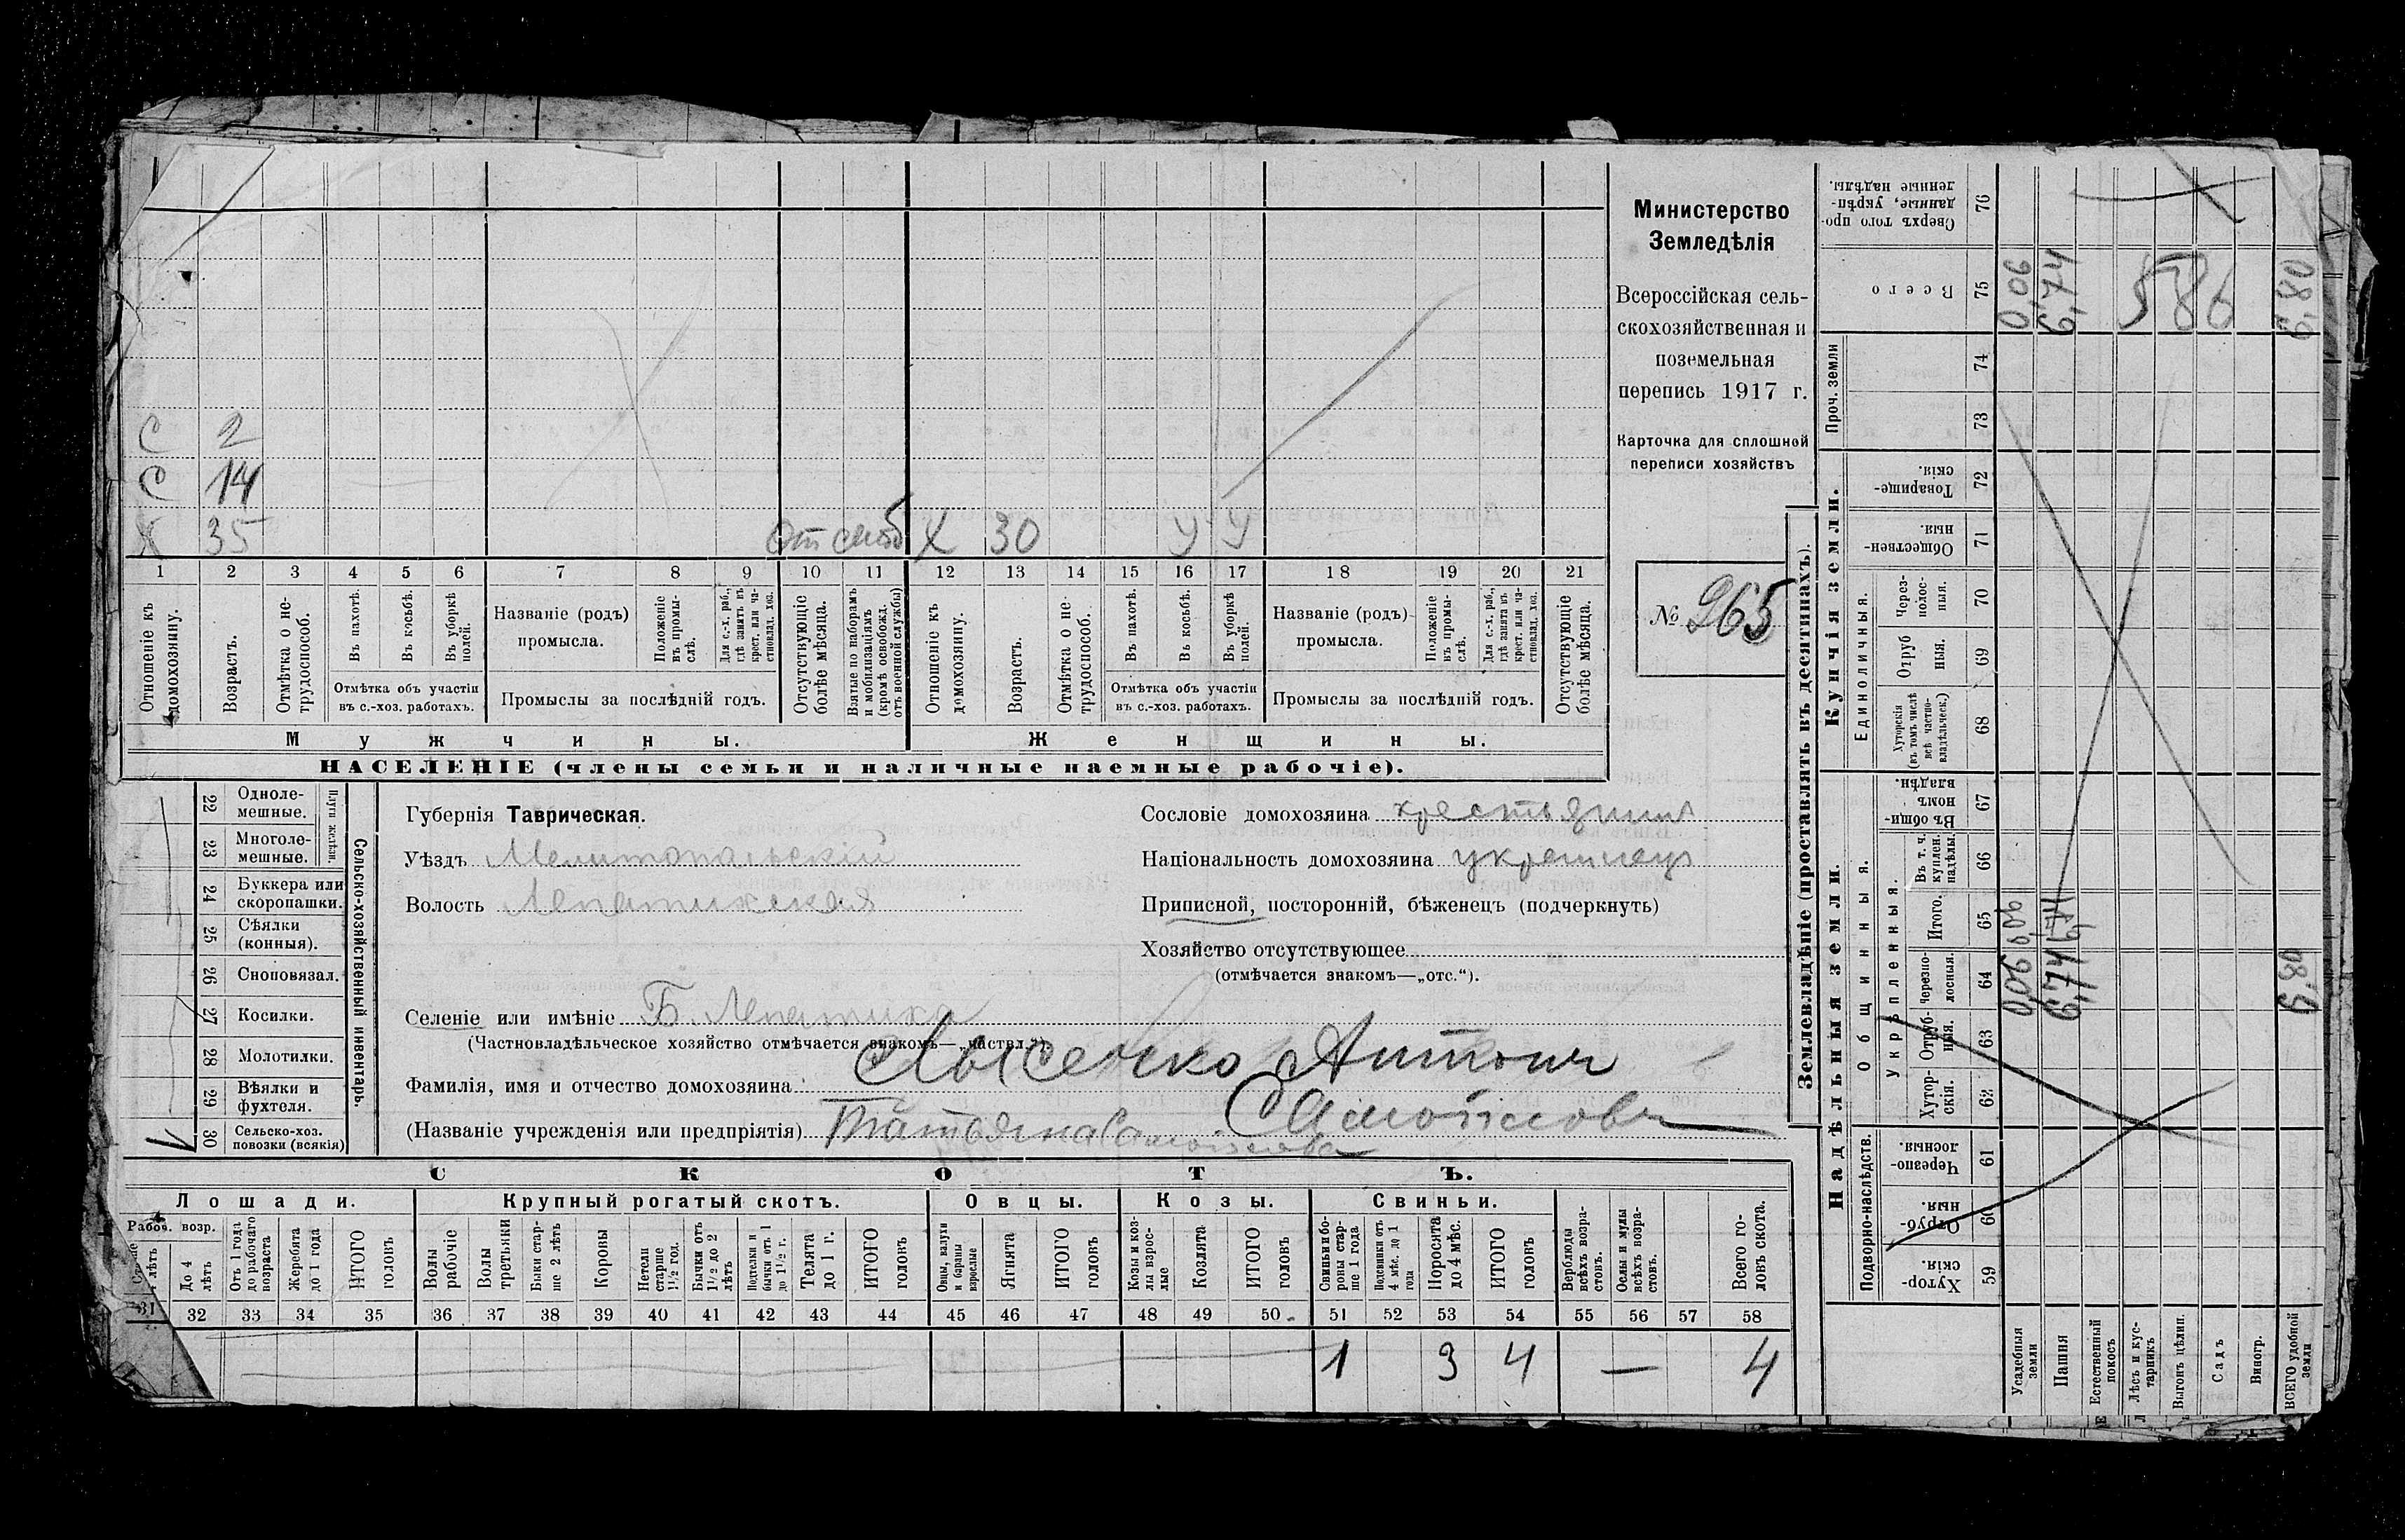 Министерство
Земледѣлія
Всероссійская сель-
скохозяйственная и
поземельная
перепись 1917 г.
Карточка для сплошной
переписи хозяйствъ
№ 965
С 2
С 14
Х 35 Х 30 У У
1 2 3 4 5 6 7 8 9 10 11 12 13 14 15 16 17 18 19 20 21
Отношеніе къ домохозяину.
Возрастъ.
Отмѣтка о не-трудоспособ.
Въ пахотѣ.
Въ косьбѣ.
Въ уборкѣ полей.
Отмѣтка объ участіи
въ с.-хоз. работахъ.
Названіе (родъ)
промысла.
Положеніе въ промы-слѣ.
Для с.-х. раб., гдѣ занятъ въ крест. или ча-стновлад. хоз.
Промыслы за послѣдній годъ.
Отсутствующіе болѣе мѣсяца.
Взятые по наборамъ и мобилизаціямъ (кромѣ освобожд. отъ военной службы)
Отношеніе къ домохозяину.
Возрастъ.
Отмѣтка о не-трудоспособ.
Въ пахотѣ.
Въ косьбѣ.
Въ уборкѣ полей.
Отмѣтка объ участіи
въ с.-хоз. работахъ.
Названіе (родъ)
промысла.
Положеніе въ промы-слѣ.
Для с.-х. раб., гдѣ занята въ крест. или ча-стновлад. хоз.
Промыслы за послѣдній годъ.
Отсутствующіе болѣе мѣсяца.
Мужчины. Женщины.
НАСЕЛЕНІЕ (члены семьи и наличные наемные рабочіе).
Сельско-хозяйственный инвентарь.
Плуги желѣзн.
22 Однолемешные.
23 Многолемешные.
24 Буккера или скоропашки.
25 Сѣялки (конныя).
26 Сноповязал.
27 Косилки.
28 Молотилки.
29 Вѣялки и фухтеля.
30 Сельско-хоз. повозки (всякія)
Губернія Таврическая.
Уѣздъ Мелитопольскій
Волость Лепатихская
Селеніе или имѣніе Б. Лепатиха
(Частновладѣльческое хозяйство отмѣчается знакомъ—„частвл.“).
Фамилія, имя и отчество домохозяина Лысенко Антонъ
Самойловъ
(Названіе учрежденія или предпріятія) Татьяна Самойлова
Сословіе домохозяина крестьянинъ
Національность домохозяина украинецъ
Приписной, посторонній, бѣженецъ (подчеркнуть)
Хозяйство отсутствующее
(отмѣчается знакомъ—„отс.“).
СКОТЪ.
Лошади. Крупный рогатый скотъ. Овцы. Козы. Свиньи.
Рабоч. возр.
До 4 лѣтъ
Отъ 1 года до рабочаго возраста
Жеребята до 1 года
ИТОГО головъ
Волы рабочіе
Волы третьяки
Быки стар-ше 2 лѣтъ
Коровы
Нетели старше 1½ год.
Бычки отъ 1½ до 2 лѣтъ
Подтелки и бычки отъ 1 до 1½ г.
Телята до 1 г.
ИТОГО головъ
Овцы, валухи и бараны взрослые
Ягнята
ИТОГО головъ
Козы и коз-лы взрос-лые
Козлята
ИТОГО головъ
Свиньи и бо-ровы стар-ше 1 года
Подсвинки отъ 4 мѣс. до 1 года
Поросята до 4 мѣс.
ИТОГО головъ
Верблюды всѣхъ возра-стовъ.
Ослы и мулы всѣхъ возра-стовъ.
Всего го-ловъ скота.
31 32 33 34 35 36 37 38 39 40 41 42 43 44 45 46 47 48 49 50 51 52 53 54 55 56 57 58
1 3 4 — 4
Землевладѣніе (проставлять въ десятинахъ).
Купчія земли.
Надѣльныя земли.
Сверхъ того про-данные, укрѣп-ленные надѣлы. 76
Всего 75
Проч. земли 74 73
Товарище-скія. 72
Обществен-ныя. 71
Единоличныя.
Через-полос-ныя. 70
Отруб-ныя. 69
Хуторскія (въ томъ числѣ всѣ частно-владѣльческ.) 68
Общинныя.
Въ общин-номъ владѣн. 67
Укрѣпленныя.
Въ т. ч. куплен. надѣлы. 66
Итого. 65
Черезпо-лосныя. 64
Отруб-ныя. 63
Хутор-скія. 62
Подворно-наслѣдств.
Черезпо-лосныя. 61
Отруб-ныя. 60
Хутор-скія. 59
Усадебныя земли
Пашня
Естественный покосъ
Лѣсъ и кус-тарникъ
Выгонъ цѣлин.
Садъ
Виногр.
ВСЕГО удобной земли
0,06
6,74
586
6,80
0,06
6,74
6,80